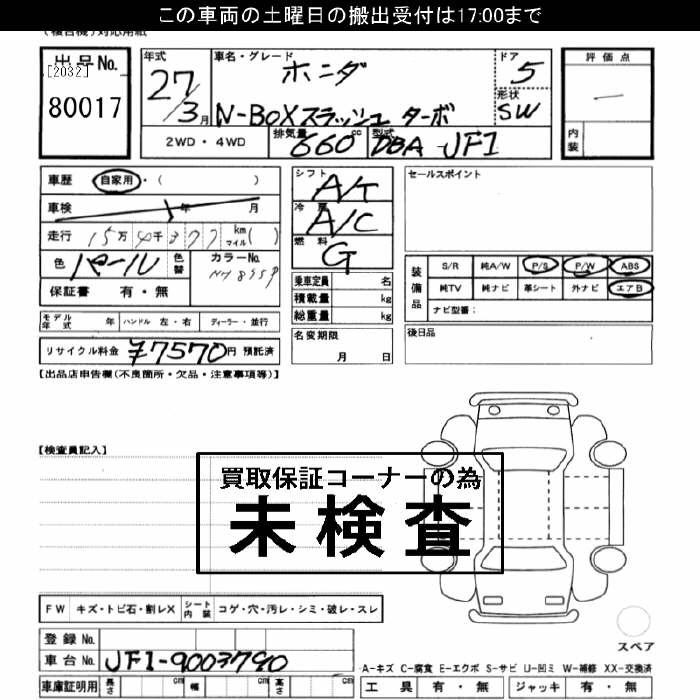 この車両の土曜日の搬出受付は17:00まで
出品No.
[2032]
80017
年式
27/3月
車名・グレード
ホンダ
N-BOXスラッシュ ターボ
ドア
5
形状
SW
評価点
—
内装
2WD・4WD
排気量 660 cc
型式 DBA-JF1
車歴 自家用・( )
車検 年 月
走行 15万 4千 377 km マイル( )
色 パール 色替
カラーNo.
保証書 有・無
シフト A/T
冷房 A/C
燃料 G
乗車定員 名
積載量 kg
総重量 kg
セールスポイント
装備品
S/R 純A/W P/S P/W ABS
純TV 純ナビ 革シート 外ナビ エアB
ナビ型番:
モデル年式 年 ハンドル 左・右 ディーラー・並行
名変期限
月 日
後日品
リサイクル料金 ¥7570円 預託済
【出品店申告欄(不良箇所・欠品・注意事項等)】
【検査員記入】
買取保証コーナーの為
未検査
FW キズ・トビ石・割レX シート内装 コゲ・穴・汚レ・シミ・破レ・スレ
登録No.
車台No. JF1-9003790
車庫証明用 長さ cm 幅 cm 高さ cm
スペア
A-キズ C-腐食 E-エクボ S-サビ U-凹ミ W-補修 XX-交換済
工具 有・無 ジャッキ 有・無